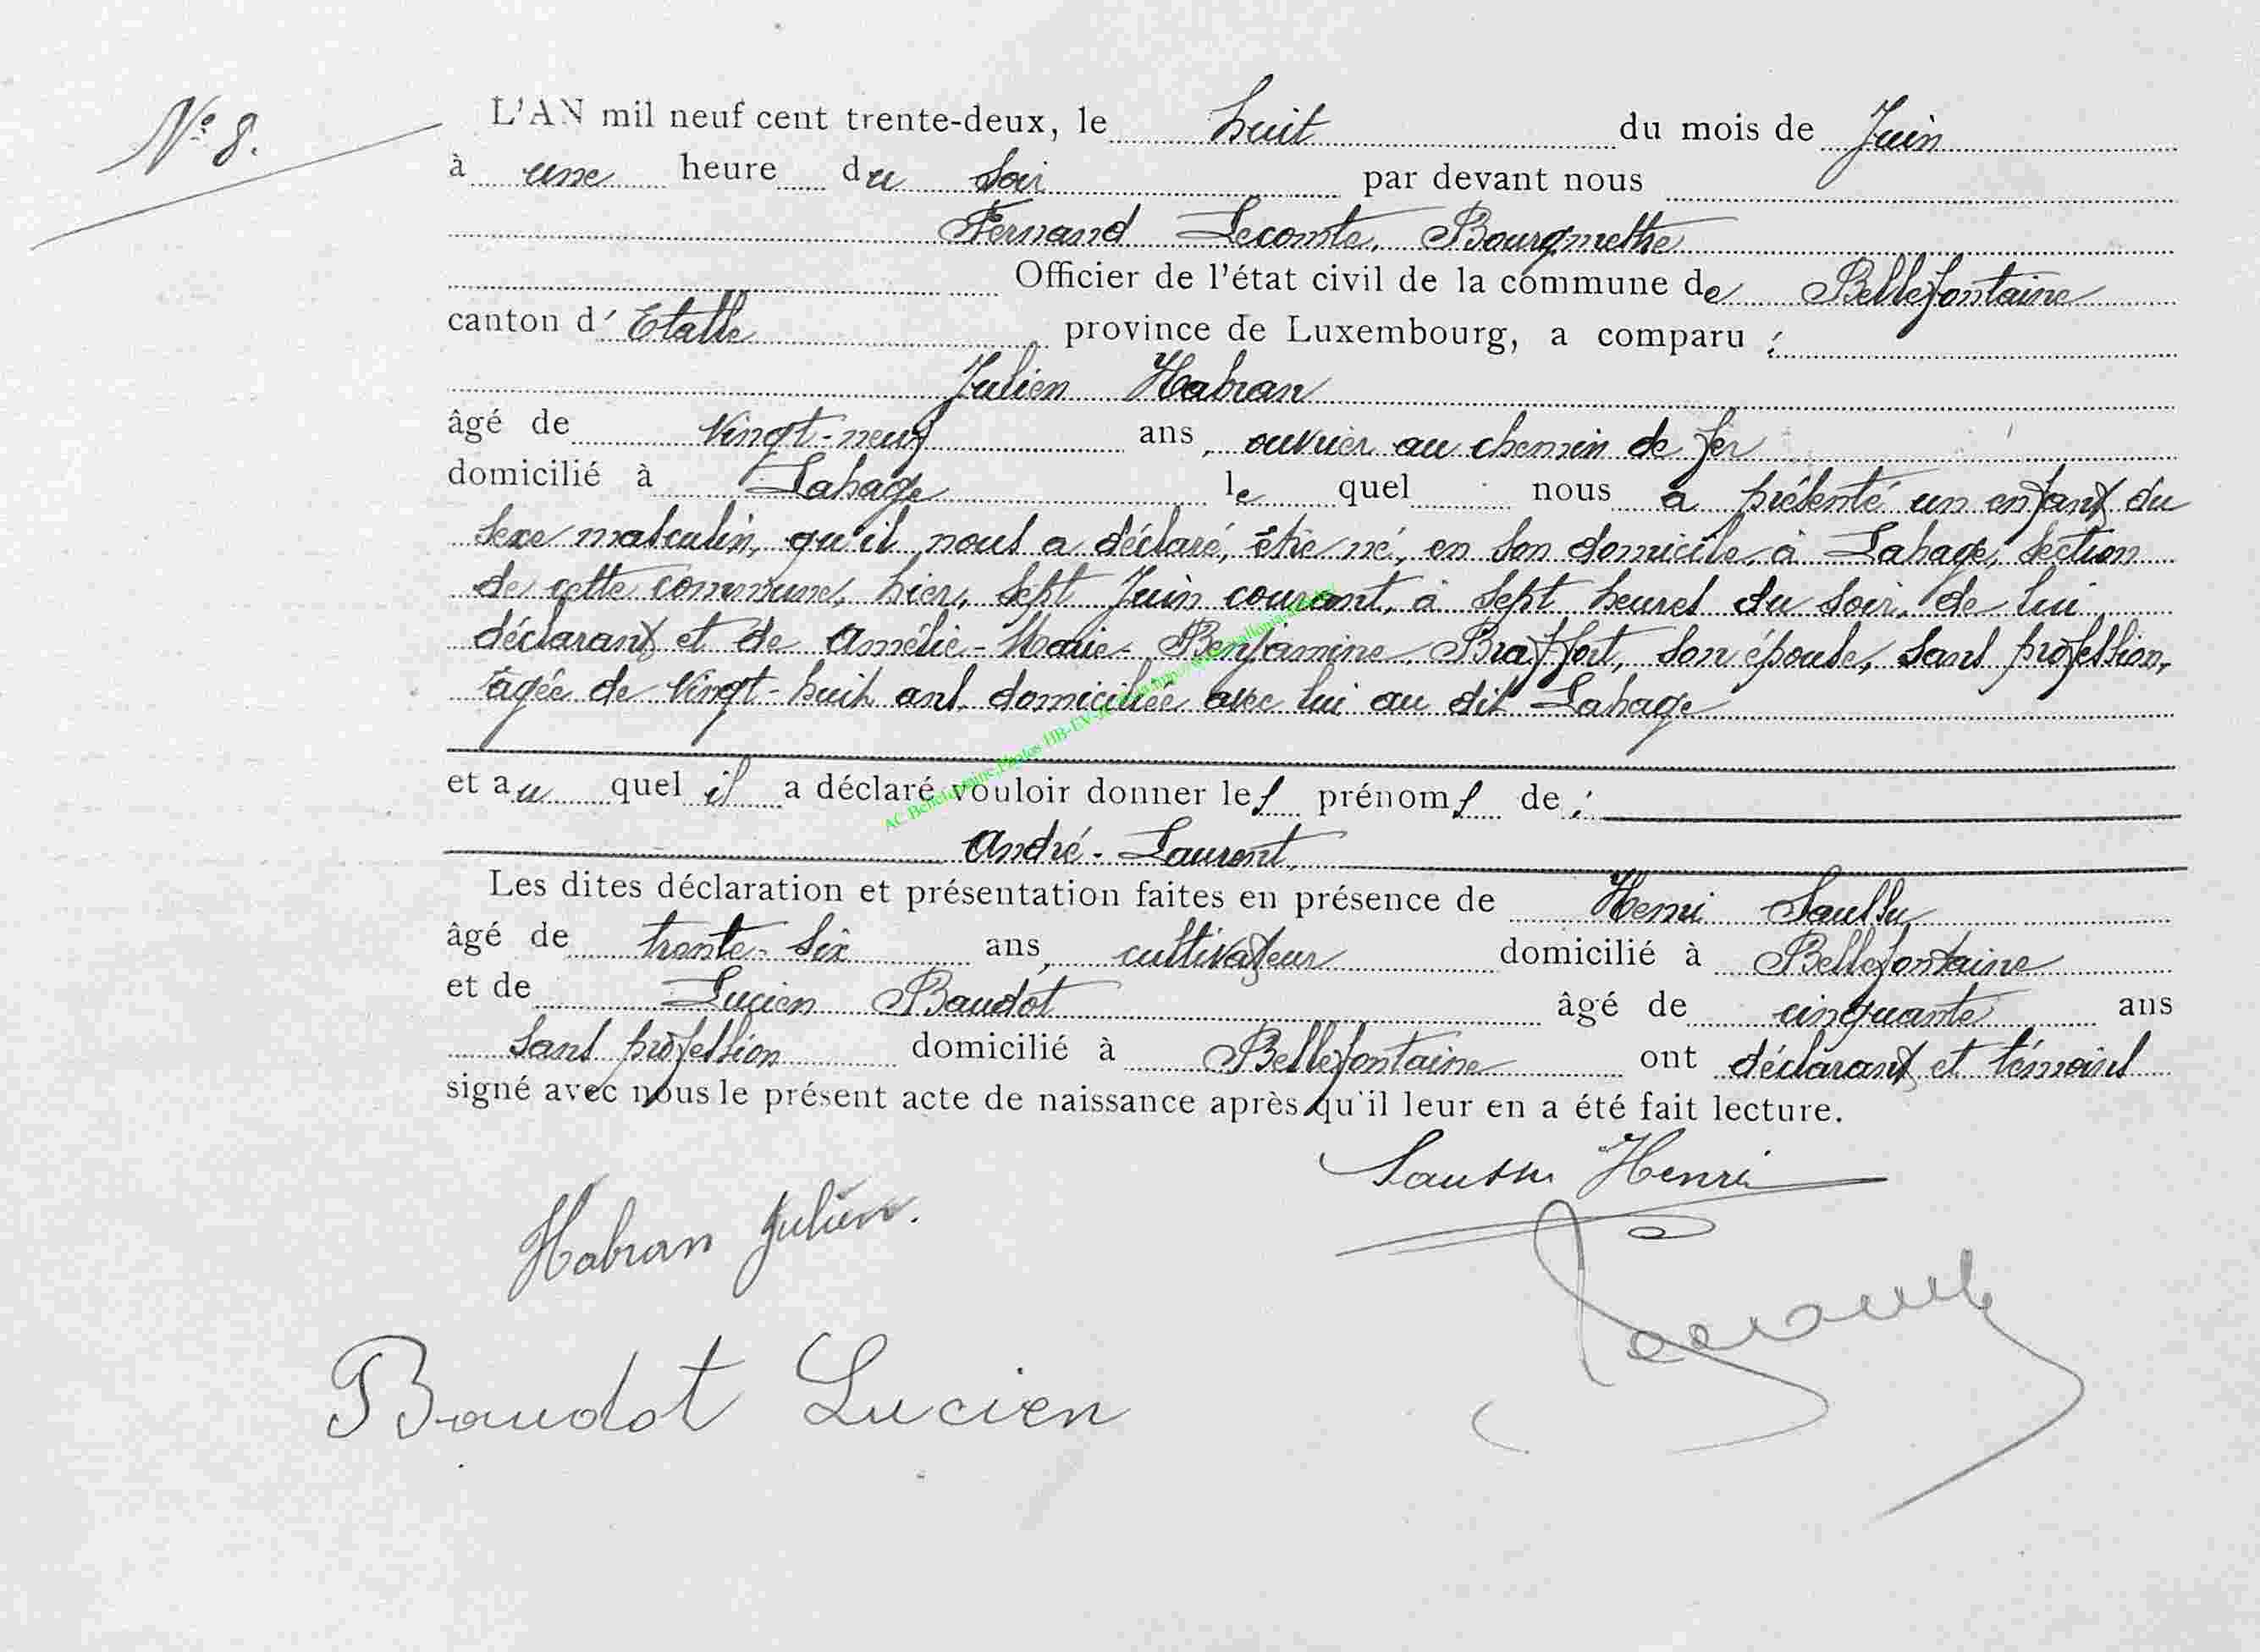 N° 8.
L'AN mil neuf cent trente-deux, le huit du mois de Juin
à une heure du soir par devant nous
Fernand Lecomte, Bourgmestre
Officier de l'état civil de la commune de Bellefontaine
canton d'Etalle province de Luxembourg, a comparu :
Julien Habran
âgé de vingt-neuf ans, ouvrier au chemin de fer
domicilié à Lahage le quel nous a présenté un enfant du
sexe masculin, qu'il nous a déclaré, être né, en son domicile, à Lahage, section
de cette commune, hier, sept Juin courant, à sept heures du soir, de lui
déclarant et de Amélie-Marie-Benjamine Braffort, son épouse, sans profession,
âgée de vingt-huit ans, domiciliée avec lui au dit Lahage
et au quel il a déclaré vouloir donner les prénoms de :
André-Laurent,
Les dites déclaration et présentation faites en présence de Henri Saussu,
âgé de trente-six ans, cultivateur domicilié à Bellefontaine
et de Lucien Baudot âgé de cinquante ans
sans profession domicilié à Bellefontaine ont déclarant et témoins
signé avec nous le présent acte de naissance après qu'il leur en a été fait lecture.
Saussu Henri
Habran Julien.
Baudot Lucien